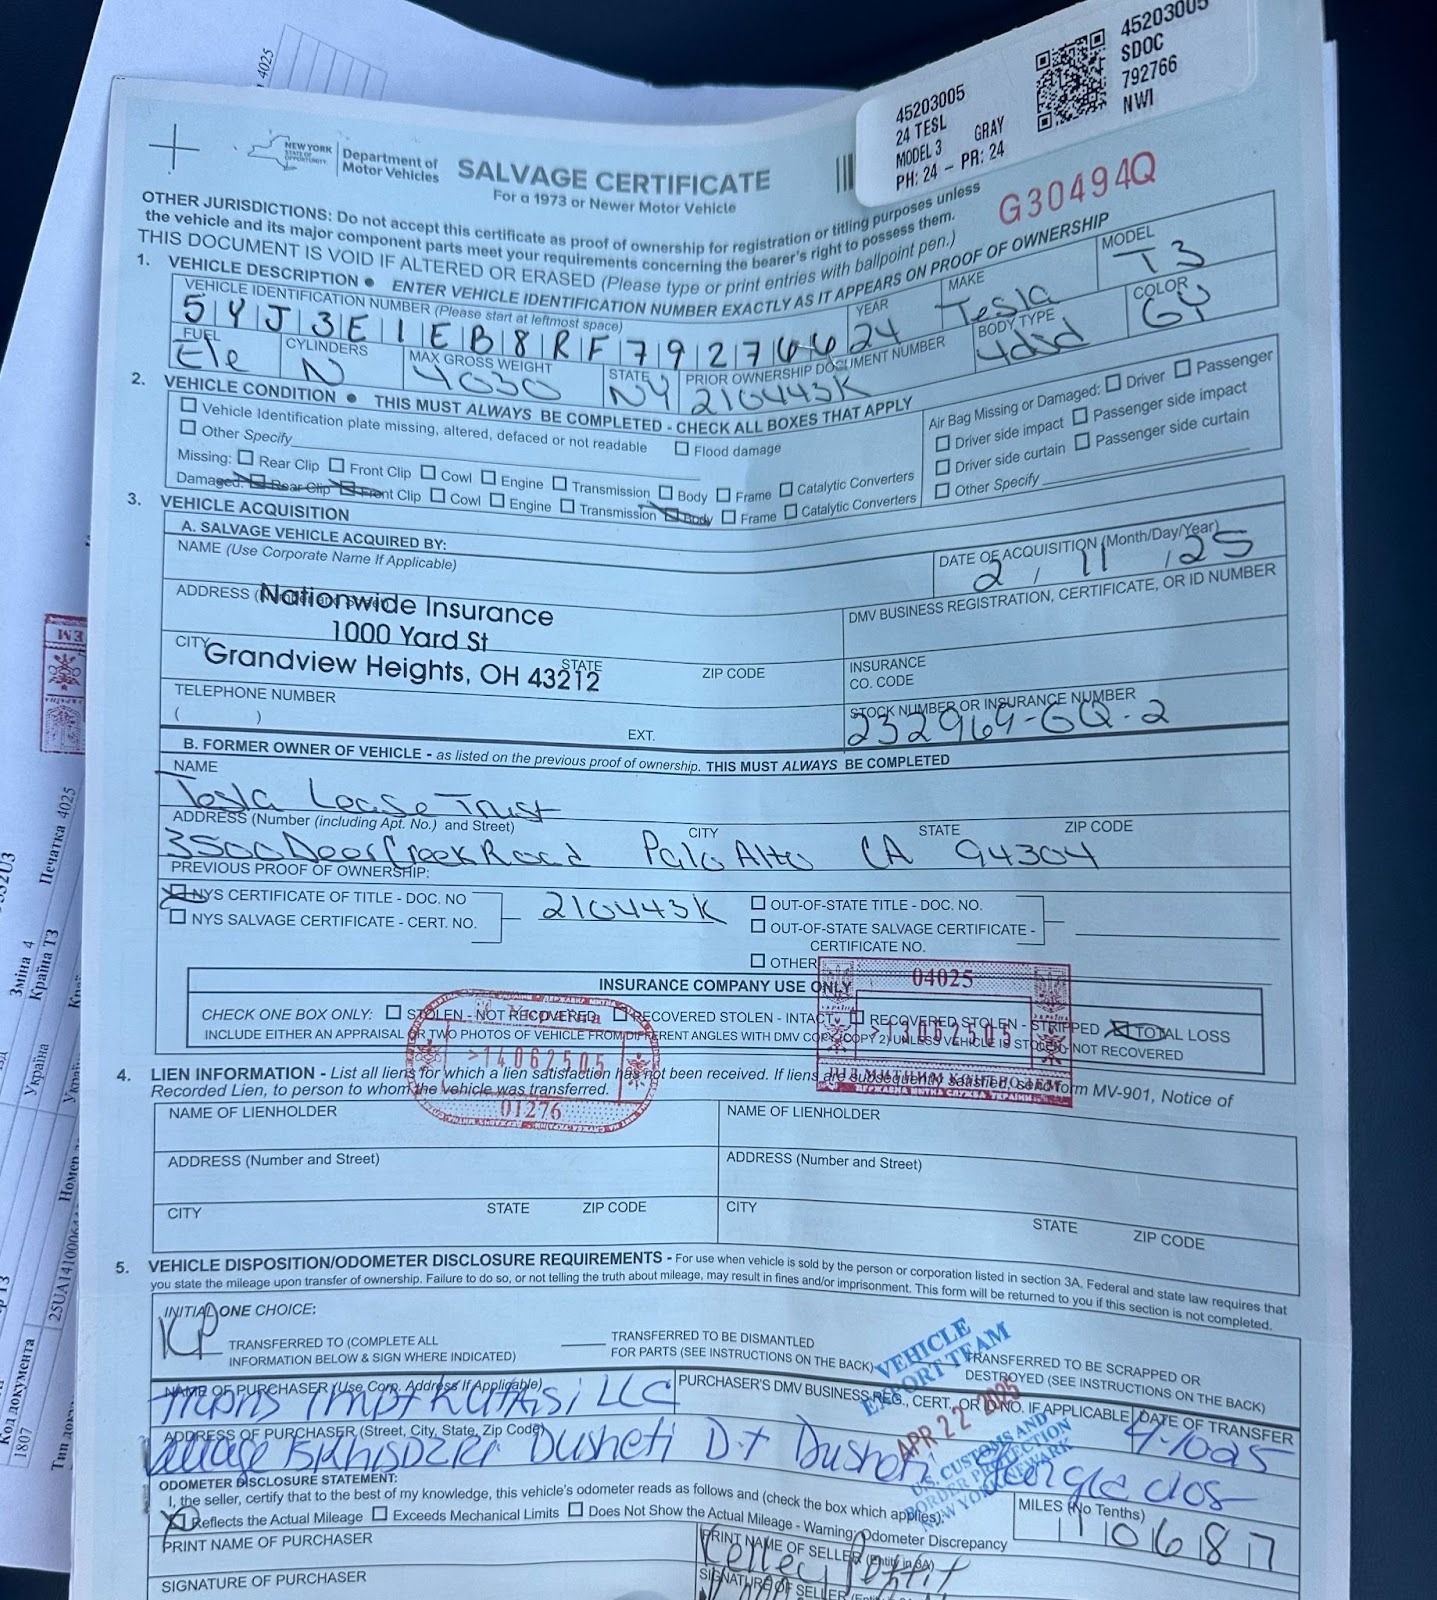 45203005
24 TESL
MODEL 3 GRAY
PH: 24 - PR: 24
45203005
SDOC
792766
NWI
4025
NEW YORK
STATE OF
OPPORTUNITY.
Department of
Motor Vehicles
SALVAGE CERTIFICATE
For a 1973 or Newer Motor Vehicle
G30494Q
OTHER JURISDICTIONS: Do not accept this certificate as proof of ownership for registration or titling purposes unless
the vehicle and its major component parts meet your requirements concerning the bearer's right to possess them.
THIS DOCUMENT IS VOID IF ALTERED OR ERASED (Please type or print entries with ballpoint pen.)
1. VEHICLE DESCRIPTION ● ENTER VEHICLE IDENTIFICATION NUMBER EXACTLY AS IT APPEARS ON PROOF OF OWNERSHIP
VEHICLE IDENTIFICATION NUMBER (Please start at leftmost space) YEAR MAKE MODEL
5YJ3E1EB8RF792766 24 Tesla T3
FUEL CYLINDERS MAX GROSS WEIGHT STATE PRIOR OWNERSHIP DOCUMENT NUMBER BODY TYPE COLOR
Ele N 4030 NY 210443K 4dsd GY
2. VEHICLE CONDITION ● THIS MUST ALWAYS BE COMPLETED - CHECK ALL BOXES THAT APPLY
Vehicle Identification plate missing, altered, defaced or not readable Flood damage
Other Specify
Missing: Rear Clip Front Clip Cowl Engine Transmission Body Frame Catalytic Converters
Damaged: Rear Clip Front Clip Cowl Engine Transmission Body Frame Catalytic Converters
Air Bag Missing or Damaged: Driver Passenger
Driver side impact Passenger side impact
Driver side curtain Passenger side curtain
Other Specify
3. VEHICLE ACQUISITION
A. SALVAGE VEHICLE ACQUIRED BY:
NAME (Use Corporate Name If Applicable)
DATE OF ACQUISITION (Month/Day/Year)
2 / 11 / 25
ADDRESS (Number and Street)
Nationwide Insurance
1000 Yard St
Grandview Heights, OH 43212
DMV BUSINESS REGISTRATION, CERTIFICATE, OR ID NUMBER
CITY STATE ZIP CODE
INSURANCE
CO. CODE
TELEPHONE NUMBER
( ) EXT.
STOCK NUMBER OR INSURANCE NUMBER
232969-GQ-2
B. FORMER OWNER OF VEHICLE - as listed on the previous proof of ownership. THIS MUST ALWAYS BE COMPLETED
NAME
Tesla Lease Trust
ADDRESS (Number (including Apt. No.) and Street) CITY STATE ZIP CODE
3500 Deer Creek Road Palo Alto CA 94304
PREVIOUS PROOF OF OWNERSHIP:
NYS CERTIFICATE OF TITLE - DOC. NO
NYS SALVAGE CERTIFICATE - CERT. NO.
210443K
OUT-OF-STATE TITLE - DOC. NO.
OUT-OF-STATE SALVAGE CERTIFICATE -
CERTIFICATE NO.
OTHER
INSURANCE COMPANY USE ONLY
CHECK ONE BOX ONLY: STOLEN - NOT RECOVERED RECOVERED STOLEN - INTACT RECOVERED STOLEN - STRIPPED TOTAL LOSS
INCLUDE EITHER AN APPRAISAL OR TWO PHOTOS OF VEHICLE FROM DIFFERENT ANGLES WITH DMV COPY (COPY 2) UNLESS VEHICLE IS STOLEN - NOT RECOVERED
04025
>13062505
ПІД МИТНИМ КОНТРОЛЕМ
ДЕРЖАВНА МИТНА СЛУЖБА УКРАЇНИ
Україна
>14062505
01276
4. LIEN INFORMATION - List all liens for which a lien satisfaction has not been received. If liens are subsequently satisfied, send form MV-901, Notice of
Recorded Lien, to person to whom the vehicle was transferred.
NAME OF LIENHOLDER NAME OF LIENHOLDER
ADDRESS (Number and Street) ADDRESS (Number and Street)
CITY STATE ZIP CODE CITY STATE ZIP CODE
5. VEHICLE DISPOSITION/ODOMETER DISCLOSURE REQUIREMENTS - For use when vehicle is sold by the person or corporation listed in section 3A. Federal and state law requires that
you state the mileage upon transfer of ownership. Failure to do so, or not telling the truth about mileage, may result in fines and/or imprisonment. This form will be returned to you if this section is not completed.
INITIAL ONE CHOICE:
KP
TRANSFERRED TO (COMPLETE ALL
INFORMATION BELOW & SIGN WHERE INDICATED)
TRANSFERRED TO BE DISMANTLED
FOR PARTS (SEE INSTRUCTIONS ON THE BACK)
TRANSFERRED TO BE SCRAPPED OR
DESTROYED (SEE INSTRUCTIONS ON THE BACK)
VEHICLE
EXPORT TEAM
APR 22 2025
U.S. CUSTOMS AND
BORDER PROTECTION
NEW YORK/NEWARK
NAME OF PURCHASER (Use Corp. Address If Applicable) PURCHASER'S DMV BUSINESS REG., CERT., OR ID NO. IF APPLICABLE DATE OF TRANSFER
LLC
ADDRESS OF PURCHASER (Street, City, State, Zip Code)
Village Dusheti Dusheti Georgia
ODOMETER DISCLOSURE STATEMENT:
I, the seller, certify that to the best of my knowledge, this vehicle's odometer reads as follows and (check the box which applies):
Reflects the Actual Mileage Exceeds Mechanical Limits Does Not Show the Actual Mileage - Warning: Odometer Discrepancy
MILES (No Tenths)
10687
PRINT NAME OF PURCHASER PRINT NAME OF SELLER (Entity in 3A)
Kelley
SIGNATURE OF PURCHASER SIGNATURE OF SELLER
Зміна 4
Країна ТЗ
Печатка 4025
Україна
Код документа
1807